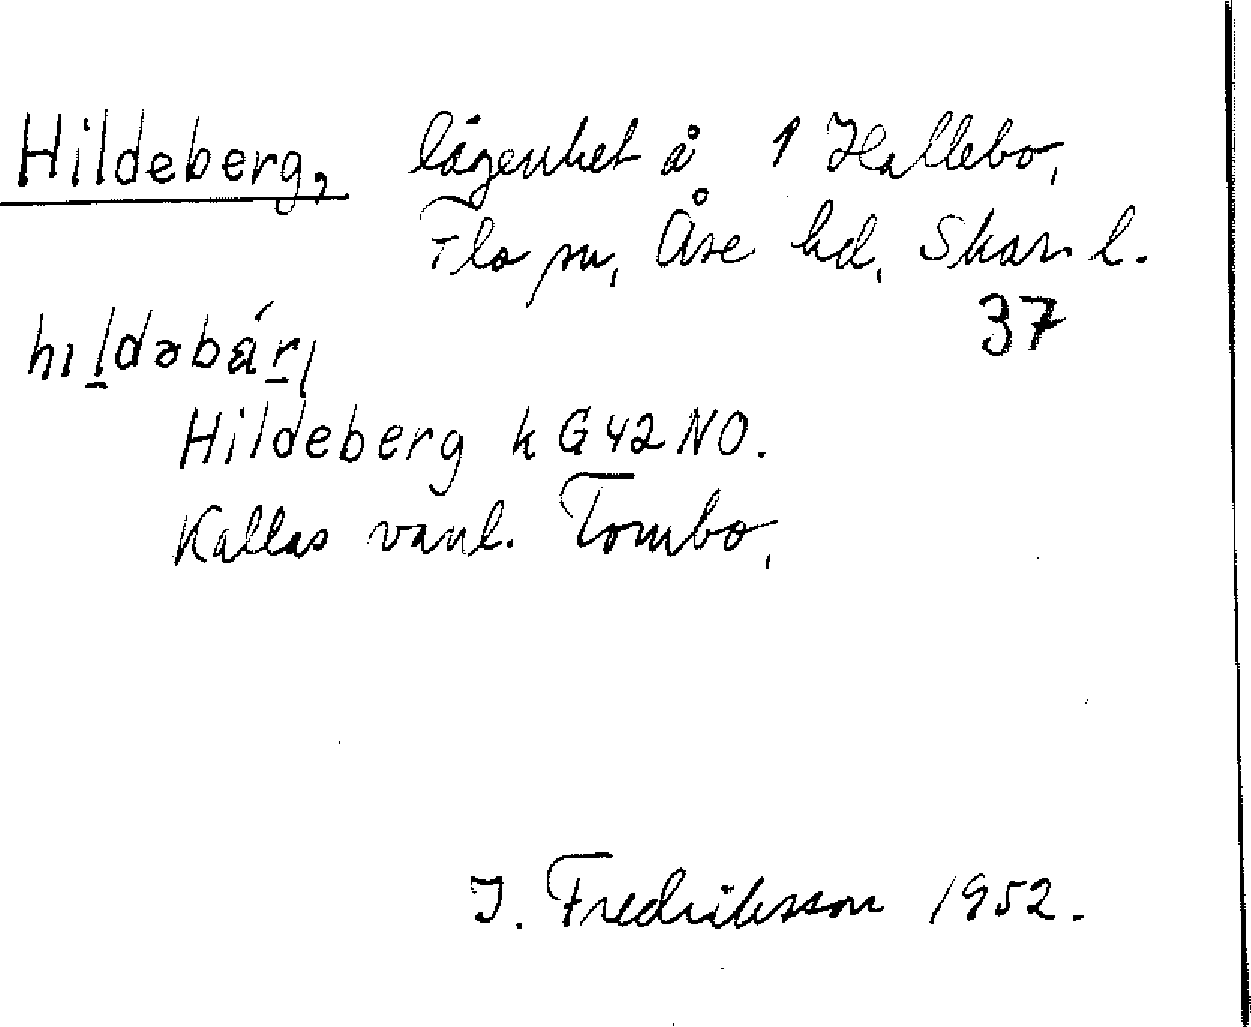 Hildeberg, lägenhet å 1 Hallebo,
Flo sn, Åse hd, Skar. l.
37
hɪl̲dəbár̲ɩ
Hildeberg k G42NO.
Kallas vanl. Tombo,
J. Fredriksson 1952.